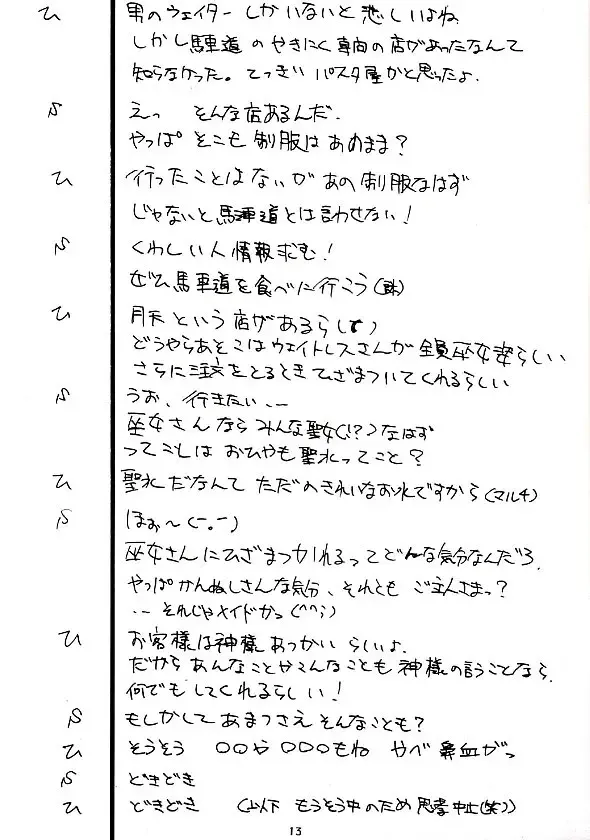 ひ 男のウェイターしかいないと悲しいよね
しかし馬車道のやきにく専向の店があったなんて
知らなかった。てっきりパスタ屋かと思ったよ.
S えっ そんな店あるんだ.
やっぱ そこも制服はあのまま?
ひ 行ったことはないが あの制服なはず
じゃないと馬車道とは言わせない!
S くわしい人情報求む!
ぜひ馬車道を食べに行こう
ひ 月天という店があるらしい
どうやらあそこはウェイトレスさんが全員巫女姿らしい
さらに注文をとるときひざまついてくれるらしい
S うお、行きたい、--
巫女さんならみんな聖女(!?)なはず
ってことは おひやも聖水ってこと?
ひ 聖水だなんて ただのきれいなお水ですから(マルチ)
S ほぉ〜(-。-)
巫女さんにひざまつかれるってどんな気分なんだろ.
やっぱかんぬしさんな気分、それとも ご主人さまっ?
-- それじゃメイドかっ(^^;)
ひ お客様は神様あつかいらしいよ.
だから あんなことやこんなことも神様の言うことなら.
何でもしてくれるらしい!
S もしかして あまつさえ そんなことも?
ひ そうそう ○○や○○○もね やべ鼻血がっ
S どきどき
ひ どきどき (以下 もうそう中のため思考中止(笑))
13